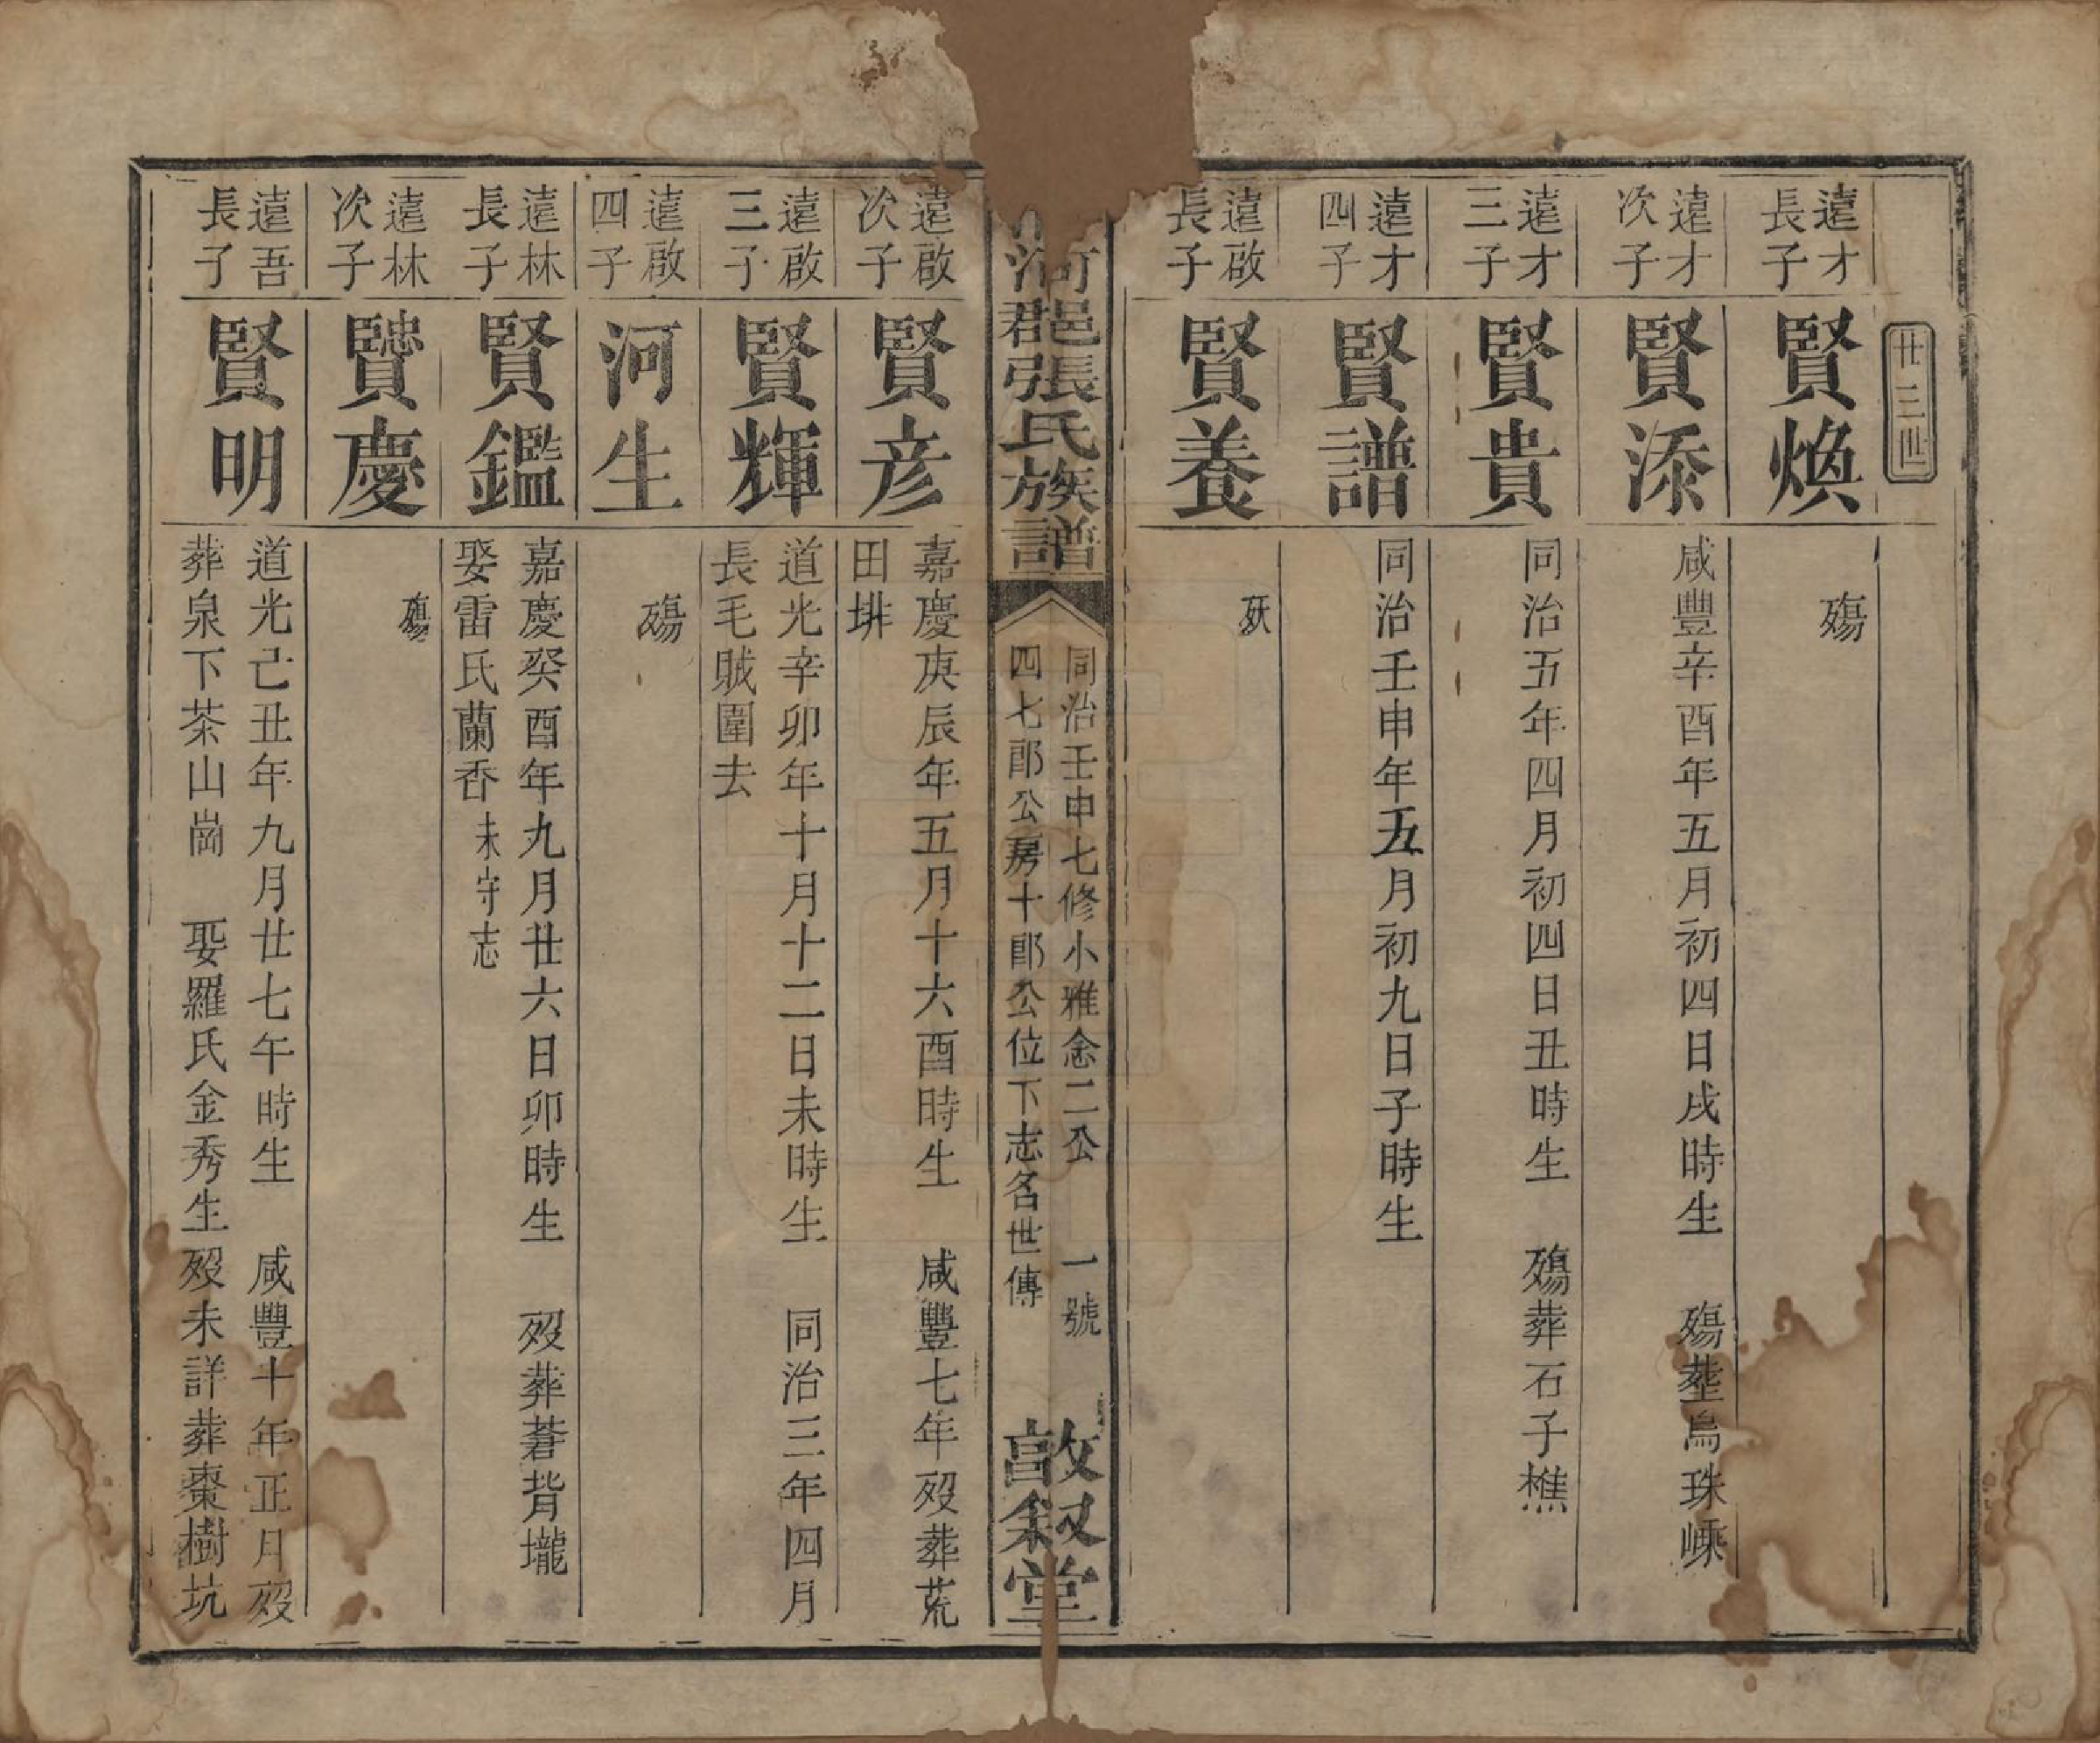 廿三世
遠才
長子
賢煥
殤
遠才
次子
賢添
咸豐辛酉年五月初四日戌時生　殤塟烏珠嵊
遠才
三子
賢貴
同治五年四月初四日丑時生　殤葬石子樵
遠才
四子
賢譜
同治壬申年五月初九日子時生
遠啟
長子
賢養
殀
河郡張氏族譜
同治壬申七修小雅念二公　一號
四七郎公房十郎公位下志名世傳
敦叙堂
遠啟
次子
賢彦
嘉慶庚辰年五月十六酉時生　咸豐七年歿葬荒
田排
遠啟
三子
賢輝
道光辛卯年十月十二日未時生　同治三年四月
長毛賊圍去
遠啟
四子
河生
殤
遠林
長子
賢鑑
嘉慶癸酉年九月廿六日卯時生　歿葬蒼背壠
娶雷氏蘭香未守志
遠林
次子
賢慶
殤
遠吾
長子
賢明
道光己丑年九月廿七午時生　咸豐十年正月歿
葬泉下茶山崗　娶羅氏金秀生歿未詳葬棗樹坑